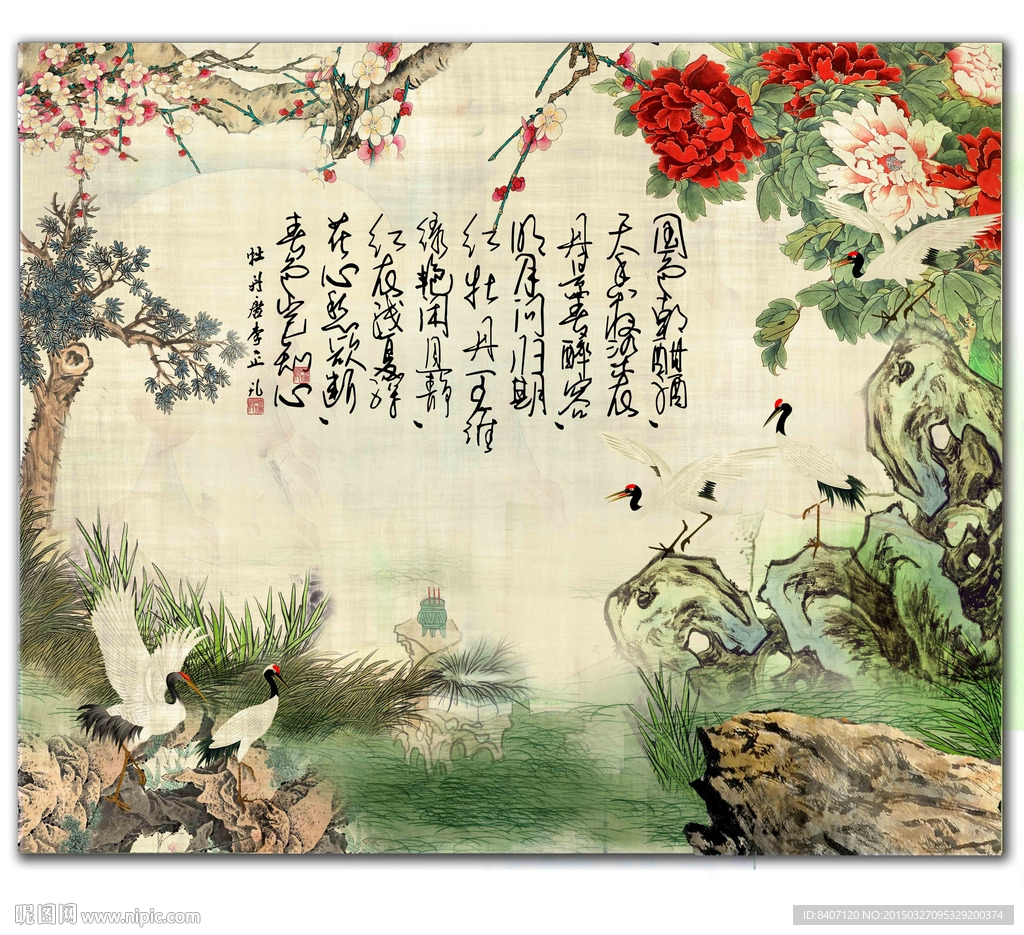 国色朝酣酒、
天香夜染衣
丹景春醉容、
明月问归期
红牡丹 王维
绿艳闲且静、
红衣浅复深
花心愁欲断、
春色岂知心
牡丹唐李正封
昵图网 www.nipic.com
ID:8407120 NO:20150327095329200374